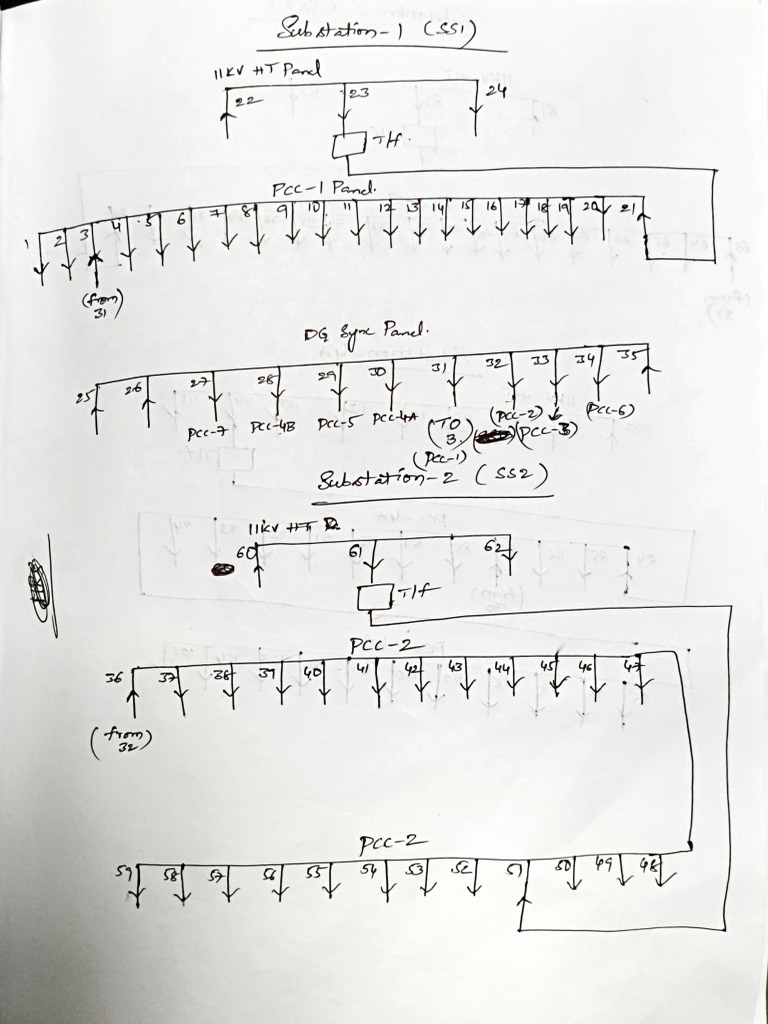 Substation-1 (SS1)
11KV HT Panel
22 23 24
T/f.
PCC-1 Panel.
1 2 3 4 5 6 7 8 9 10 11 12 13 14 15 16 17 18 19 20 21
(from
31)
DG Sync Panel.
25 26 27 28 29 30 31 32 33 34 35
PCC-7 PCC-4B PCC-5 PCC-4A (TO 3) (PCC-2) (PCC-3) (PCC-6)
(PCC-1)
Substation-2 (SS2)
11KV HT
60 61 62
T/f
PCC-2
36 37 38 39 40 41 42 43 44 45 46 47
(from
32)
PCC-2
59 58 57 56 55 54 53 52 51 50 49 48